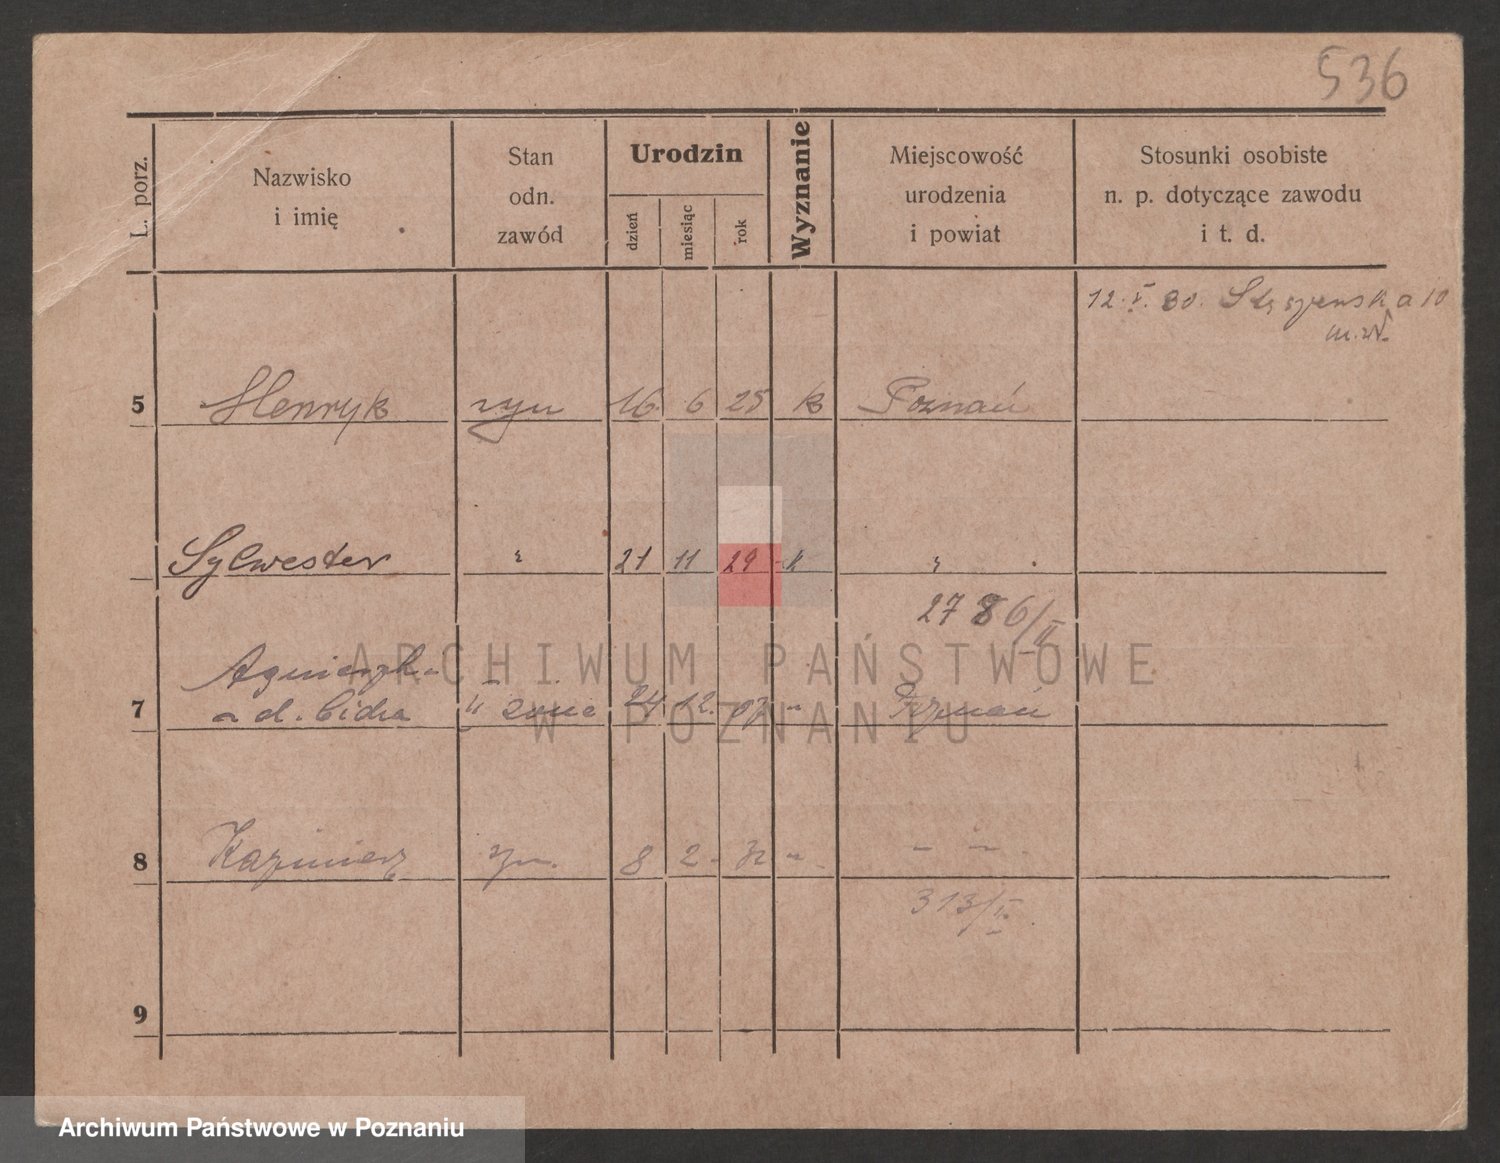 536
L. porz.
Nazwisko
i imię
Stan
odn.
zawód
Urodzin
dzień
miesiąc
rok
Wyznanie
Miejscowość
urodzenia
i powiat
Stosunki osobiste
n. p. dotyczące zawodu
i t. d.
12. V. 30. 10
5 Henryk syn 16 6 25 k Poznań
Sylwester " 21 11 29 k "
2786/II
Agnieszka
7 d. II żona 24 12. 07 " Poznań
8 Kazimierz syn. 8 2. 32 " - -
313/II.
9
ARCHIWUM PAŃSTWOWE
W POZNANIU
Archiwum Państwowe w Poznaniu